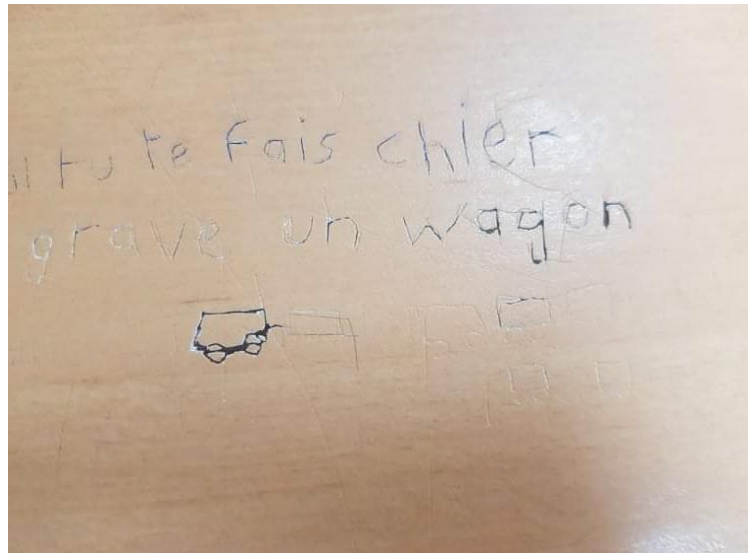 tu te fais chier
grave un wagon